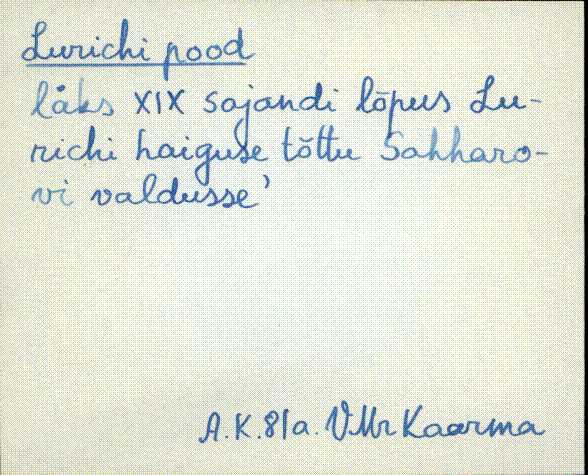 Lurichi pood
läks XIX sajandi lõpus Lu-
richi haiguse tõttu Sahharo-
vi valdusse'
A.K.81a. VMr Kaarma